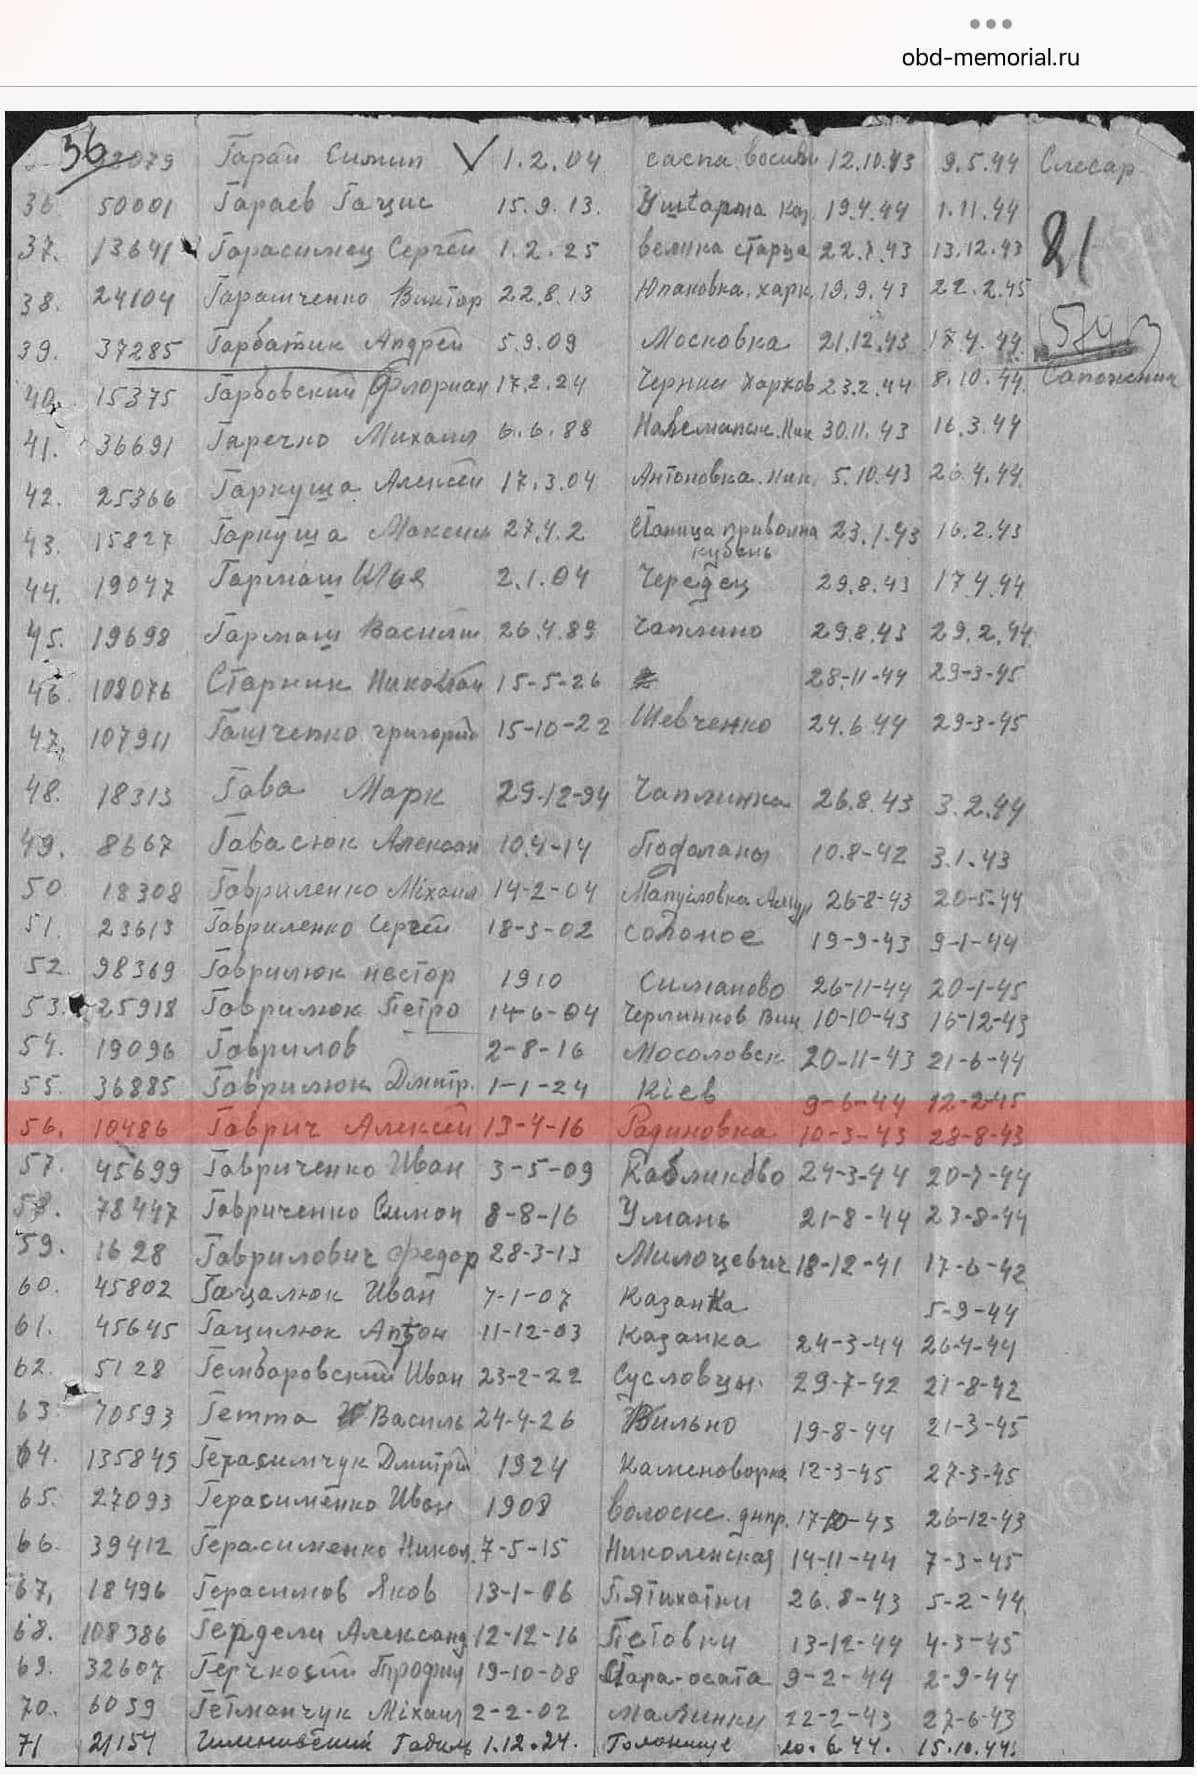 obd-memorial.ru
36 Гарай Симип 1.2.04 12.10.43 9.5.44 Слесар
36 50001 Гараев Гацис 15.9.13. 19.4.44 1.11.44
21
37. 13641 Гарасимец Сергей 1.2.25 велика старца 22.7.43 13.12.43
38. 24104 Гаращенко Виктор 22.8.13 Юпаковка. харк. 19.9.43 22.2.45
39. 37285 Гарбатик Андрей 5.9.09 Московка 21.12.43 17.4.44
40. 15375 Гарбовский Флориан 17.2.24 23.2.44 8.10.44. Сапожник
41. 36691 Гаречко Михаил 6.6.88 30.11.43 16.3.44
42. 25366 Гаркуша Алексей 17.3.04 Антоновка. Ник. 5.10.43 26.4.44.
43. 15827 Гаркуша Максим 27.4.2 Станица приволна 23.1.43 16.2.43
кубань
44. 19047 Гармаш Илья 2.1.04 Чередец 29.8.43 17.4.44
45. 19698 Гармаш Василий 26.4.89 Чаплино 29.8.43 29.2.44.
46. 108076 Старник Николай 15-5-26 28-11-44 29-3-45
47. 107911 Гащенко григорий 15-10-22 Шевченко 24.6.44 29-3-45
48. 18313 Гава Марк 29-12-94 Чаплинка 26.8.43 3.2.44
49. 8667 Гавасюк Алексан 10.4-14 10.8-42 3.1.43
50 18308 Гавриленко Міхаил 14-2-04 26-8-43 20-5-44
51. 23613 Гавриленко Сергей 18-3-02 Солоное 19-9-43 9-1-44
52. 98369 Гаврилюк нестор 1910 Симаново 26-11-44 20-1-45
53. 25918 Гаврилюк Петро 14-6-04 Черлинков Вин 10-10-43 16-12-43
54. 19096 Гаврилов 2-8-16 Мосоловск 20-11-43 21-6-44
55. 36885 Гаврилюк Дмитр. 1-1-24 Кіев 9-6-44 12-2-45
56. 10486 Гаврич Алексей 13-4-16 Радиновка 10-3-43 28-8-43
57. 45699 Гавриченко Иван 3-5-09 Кабликово 24-3-44 20-7-44
58. 78447 Гавриченко Симон 8-8-16 Умань 21-8-44 23-8-44
59. 1628 Гаврилович Федор 28-3-13 Милоцевич 18-12-41 17-6-42
60. 45802 Гацалюк Иван 7-1-07 Казанка 5-9-44
61. 45645 Гацилюк Антон 11-12-03 Казанка 24-3-44 26-4-44
62. 5128 Гембаровский Иван 23-2-22 Сусловцы. 29-7-42 21-8-42
63. 70593 Гетта Василь 24-4-26 Вильно 19-8-44 21-3-45
64. 135849 Герасимчук Дмитрій 1924 Каменоворка 12-3-45 27-3-45
65. 27093 Герасименко Иван 1908 волоске. днпр. 17-10-43 26-12-43
66. 39412 Герасименко Никол. 7-5-15 Николенская 14-11-44 7-3-45
67. 18496 Герасимов Яков 13-1-06 Пятихатки 26.8-43 5-2-44
68. 108386 Гердели Александ 12-12-16 Петовки 13-12-44 4-3-45
69. 32607 Трофим 19-10-08 Стара-осота 9-2-44 2-9-44
70. 6059 Гетманчук Міхаил 2-2-02 Малинки 22-2-43 27-6-43
71 21154 1.12.24. Голонище 20.6.44. 15.10.44.